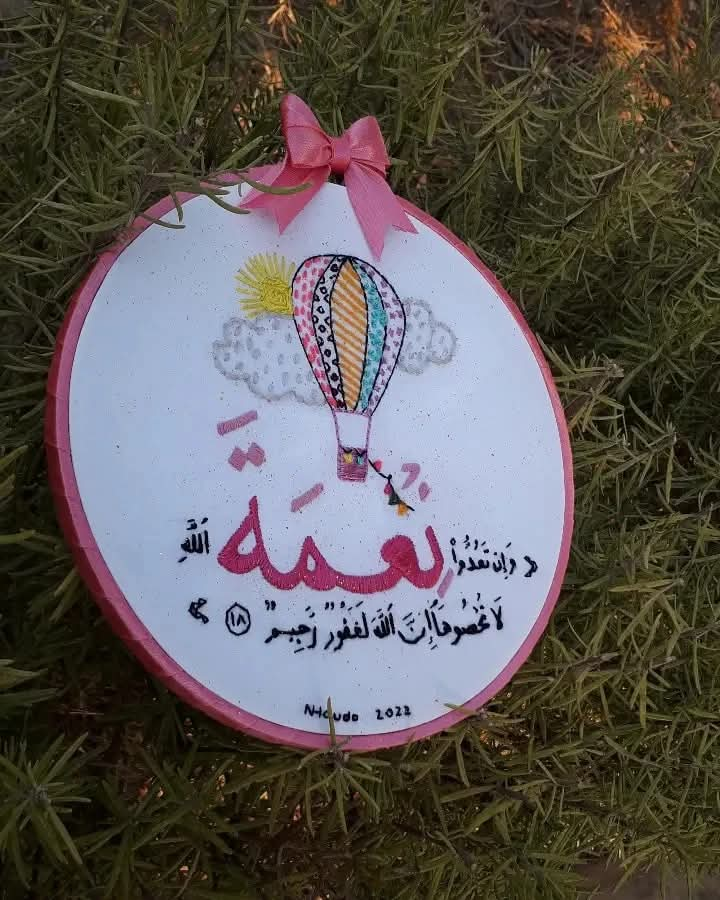 « وَإِن تَعُدُّوا۟ نِعْمَةَ اللَّهِ
لَا تُحْصُوهَا إِنَّ اللَّهَ لَغَفُورٌ رَّحِيمٌ ١٨ »
N-Houda 2022